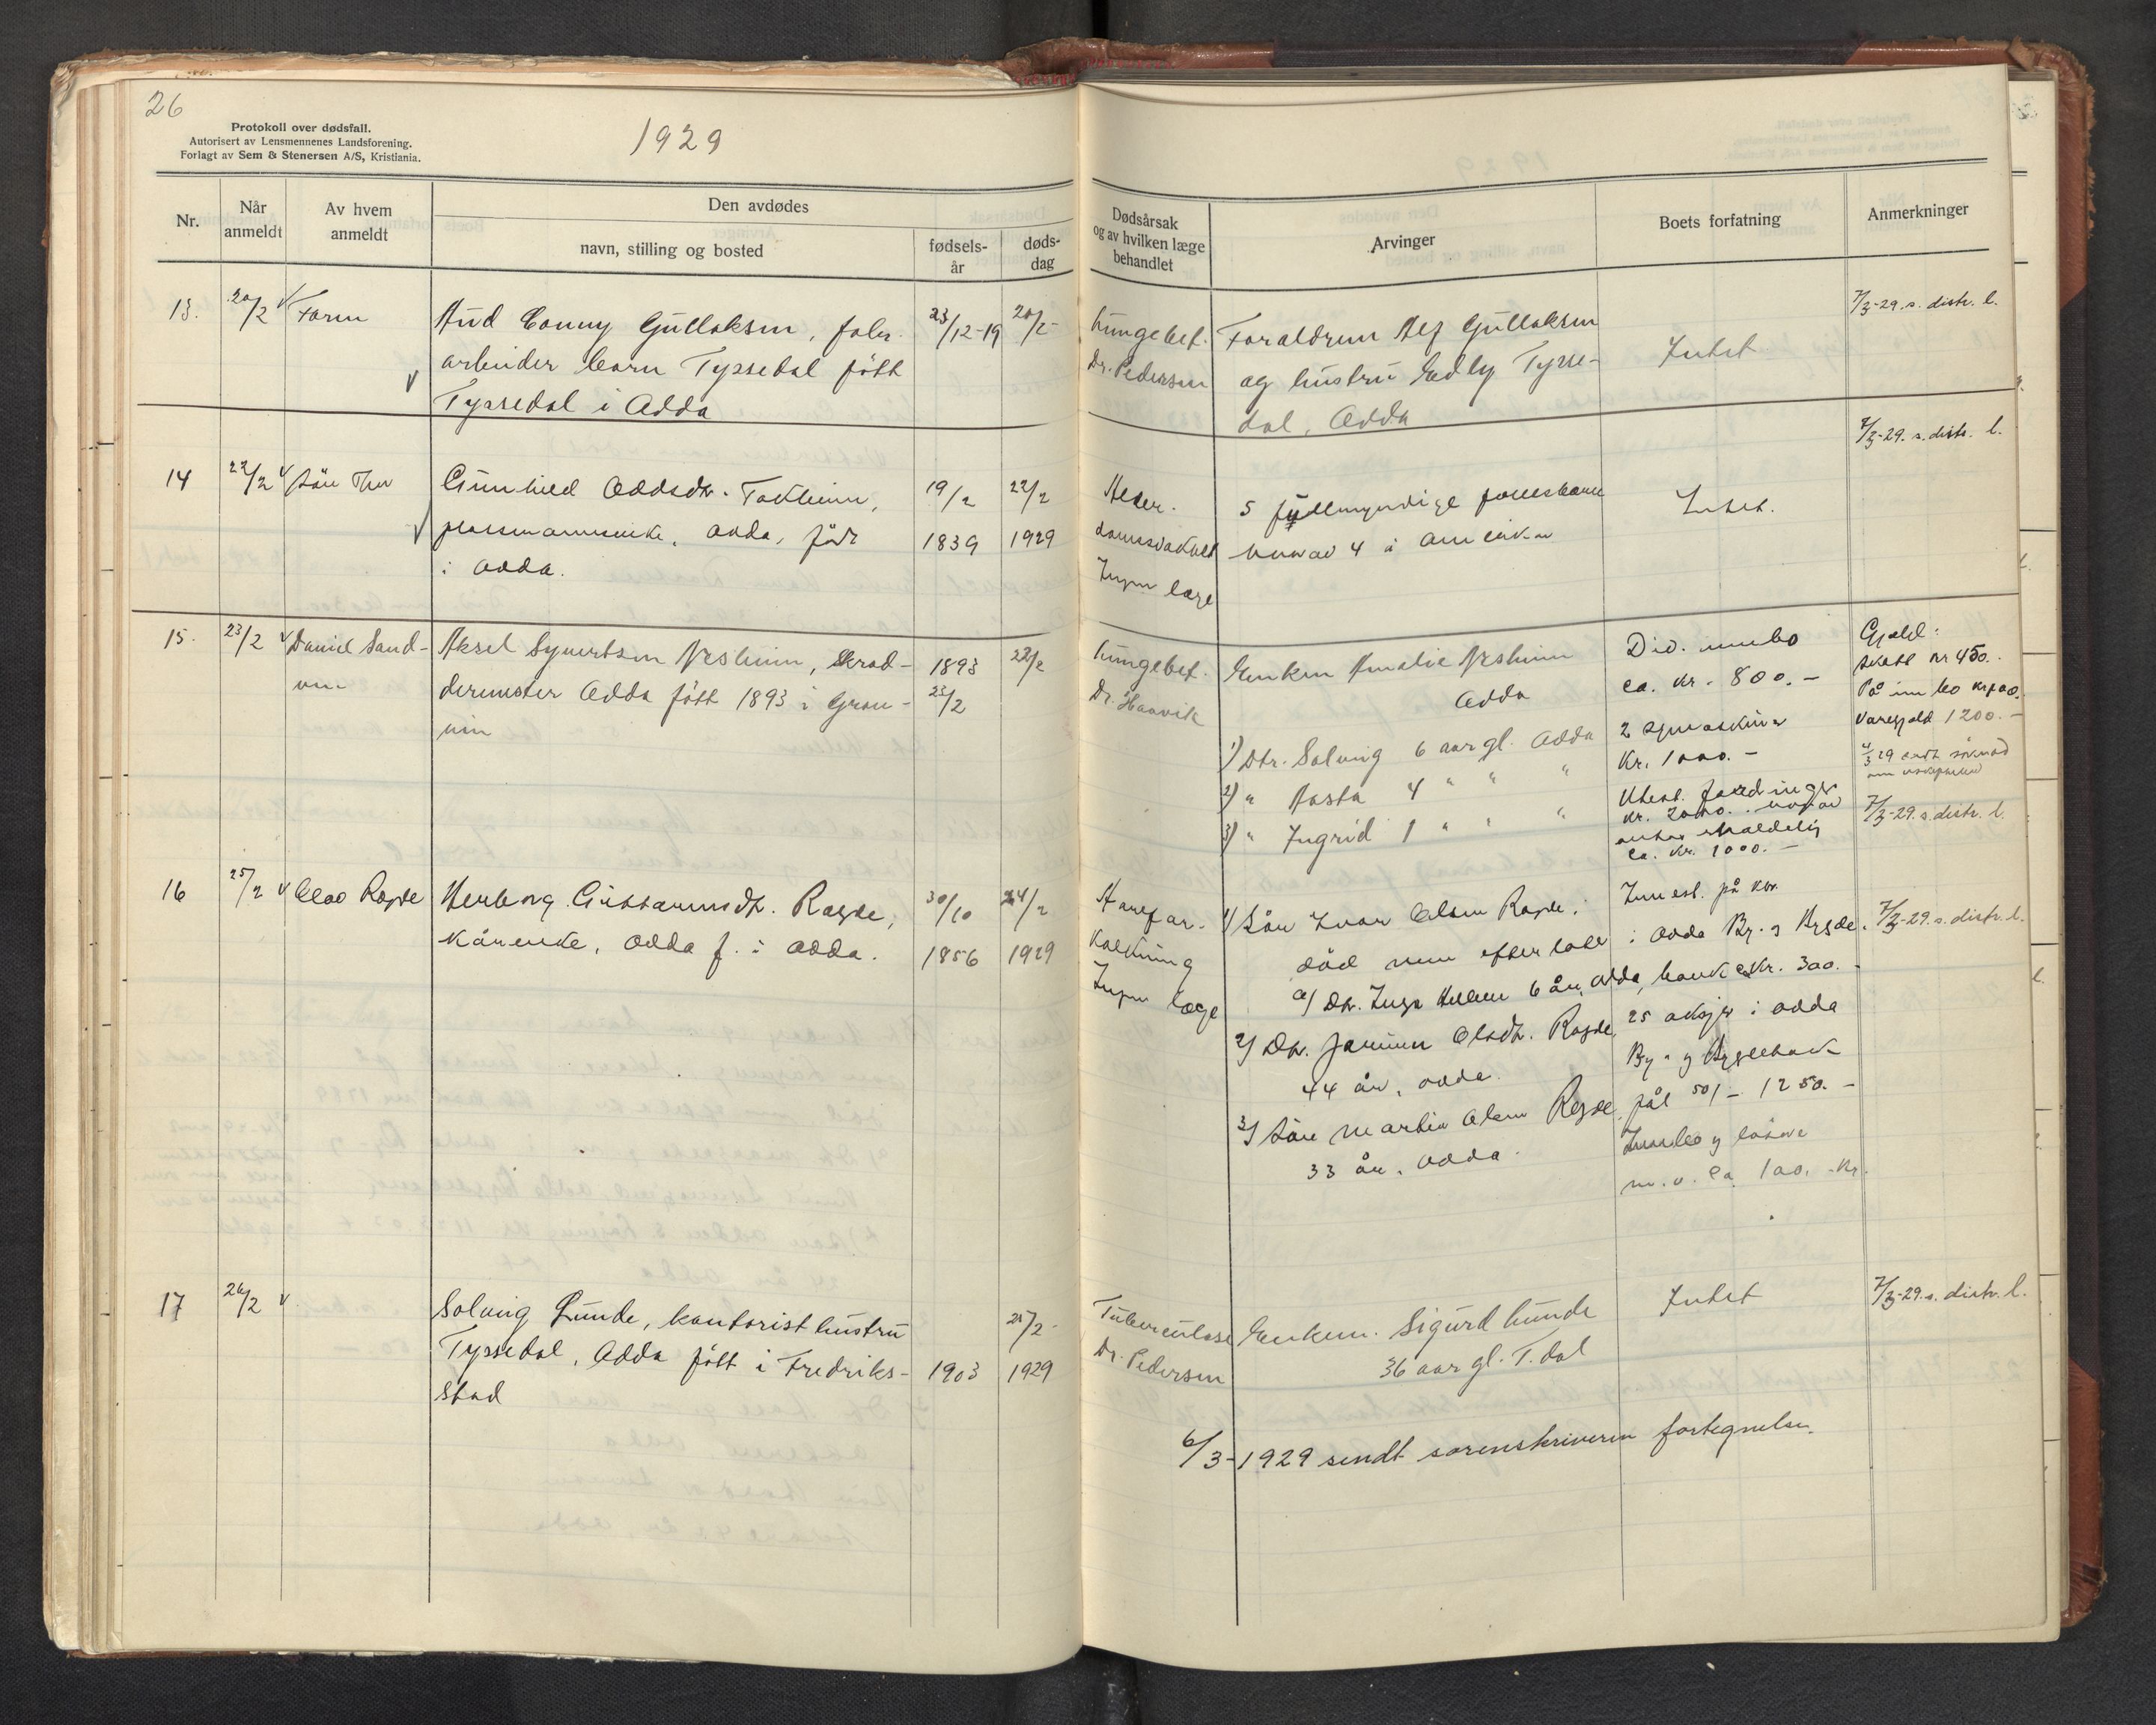 26
Protokoll over dødsfall.
Autorisert av Lensmennenes Landsforening.
Forlagt av Sem & Stenersen A/S, Kristiania.
1929
Nr.
Når anmeldt
Av hvem anmeldt
Den avdødes
navn, stilling og bosted
fødsels-år
døds-dag
Dødsårsak
og av hvilken læge
behandlet
Arvinger
Boets forfatning
Anmerkninger
13.
20/2
Faren
Aud Conny Gullaksen, fabr.
arbeider barn Tyssedal født
Tyssedal i Odda
23/12-19
20/2
Lungebet.
Dr. Pedersen
Foraldrene Alf Gullaksen
og hustru Edly Tysse-
dal, Odda
Intet
7/3-29. s. distr. l.
14
22/2
Sön Thor
Gunhild Oddsdtr. Tokheim,
plassmannsenke, Odda, född
i Odda.
19/2
1839
22/2
1929
Alder-
domssvakhet
Ingen læge
5 fullmyndige
4 i Amerika
Intet.
7/3-29. s. distr. l.
15.
23/2
Daniel Sand-
ven
Aksel Sjurtsen Nesheim, Skrad-
dermester Odda født 1893 i Gran-
vin
1893
23/2
22/2
Lungebet.
Dr. Haavik
Enken Amalie Nesheim
Odda
1) Dtr. Solveig 6 aar gl. Odda
2) " Aasta 4 " " "
3) " Ingrid 1 " " "
Div. innbo
ca. kr. 800.-
2 symaskiner
Kr. 1000.-
Utest. fordringer
kr. 2000.
ca. kr. 1000.-
Gjæld:
skatt kr 450.
På innbo
varegjæld 1200.-
7/3-29. s. distr. l.
16
25/2
Olav Ragde
Herborg Guttormsdtr. Ragde,
kårenke, Odda f. i Odda.
30/10
1856
24/2
1929
Årefor-
kalkning
Ingen læge
1) Sön Ivar Olsen Ragde,
död men efterlatt
a) Dtr. Inga Helene 6 år, Odda,
2) Dtr. Olsdtr. Ragde,
44 år, Odda.
3) Sön Martin Olsen Ragde,
33 år, Odda.
Innest. på kto.
i Odda By- og Bygde-
bank ca kr. 300.-
25 aksjer i Odda
By- og Bygdebank
pål 50/- 1250.-
Innbo og lösöre
m. v. ca. 100.- kr.
7/3-29. s. distr. l.
17
26/2
Solveig Lunde, kontorist hustru
Tyssedal, Odda født i Fredriks-
stad
1903
25/2-
1929
Tuberculose
Dr. Pedersen
Enkem. Sigurd Lunde
36 aar gl. T.dal
Intet
7/3-29. s. distr. l.
6/3-1929 sendt sorenskriveren fortegnelse.